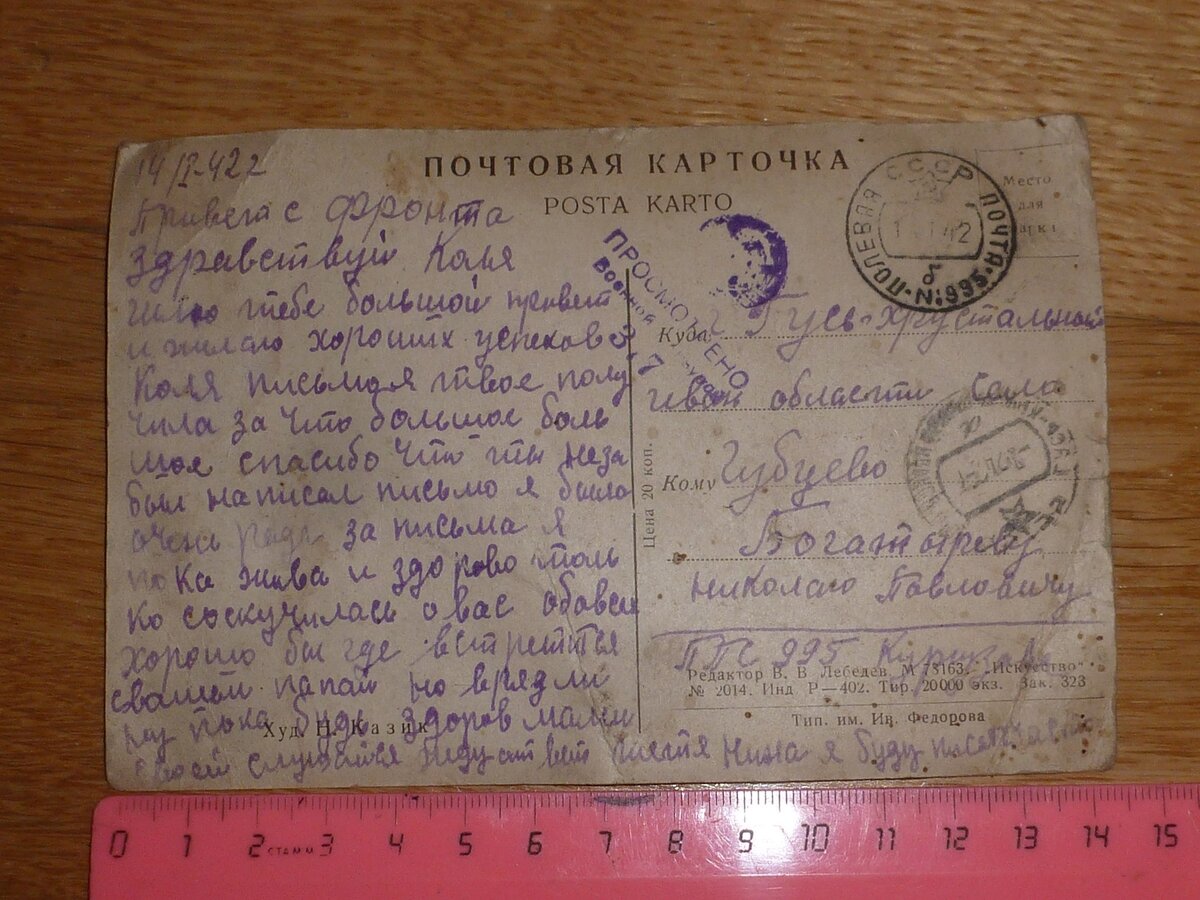 14/I-42 г
ПОЧТОВАЯ КАРТОЧКА
POSTA KARTO
Привет с фронта
Здравствуй Коля
шлю тебе большой привет
и жилаю хороших успехов
Коля письмо я твое полу
чила за что большое боль
шое спасибо что ты неза
был написал письмо я была
очень рада за письма я
пока жива и здорово толь
ко соскучилась о вас обовсех
хорошо бы где встретится
свашей папай но врядли
ну пока будь здоров мами
своей слушайся жду ответ тетя Нина я буду писать
Худ. Н. Казик
Цена 20 коп.
СССР
ПОЛЕВАЯ ПОЧТА
№ 995
б
Место
для
марки
ПРОСМОТРЕНО
Военной
Куда г Гусь-Хрустальной
Ивон области Село
Кому Губцево
Богатыреву
Николаю Павловичу
ППС 995
Редактор В. В. Лебедев. М 78163. „Искусство"
№ 2014. Инд. Р—402. Тир. 20000 экз. Зак. 323
Тип. им. Ив. Федорова
0 1 2 3 4 5 6 7 8 9 10 11 12 13 14 15